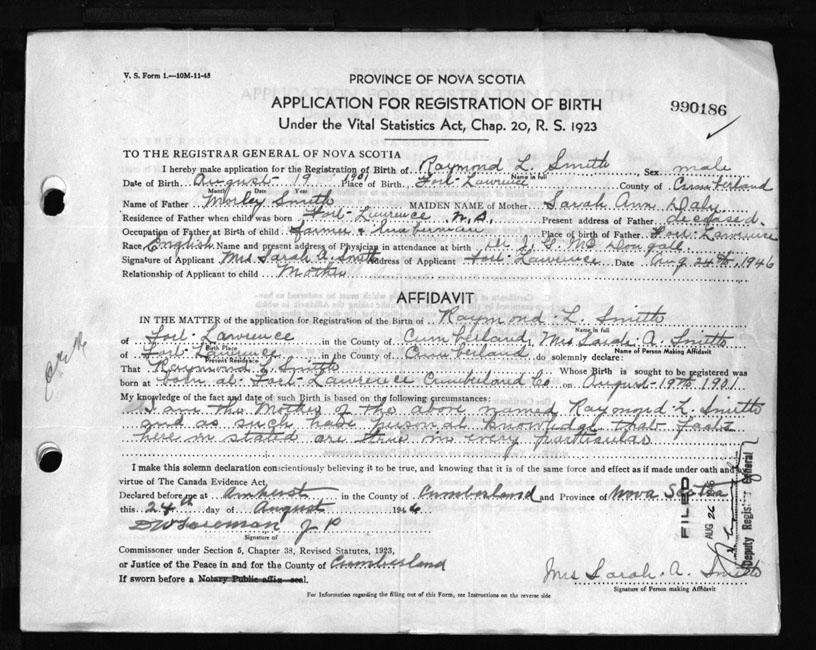 V. S. Form 1.—10M-11-45
PROVINCE OF NOVA SCOTIA
APPLICATION FOR REGISTRATION OF BIRTH
990186
Under the Vital Statistics Act, Chap. 20, R. S. 1923
TO THE REGISTRAR GENERAL OF NOVA SCOTIA
I hereby make application for the Registration of Birth of Raymond L. Smith, Sex male
Name in full
Date of Birth August 19 1901 Place of Birth Fort Lawrence County of Cumberland
Month Date Year
Name of Father Morley Smith MAIDEN NAME of Mother Sarah Ann Daly
Residence of Father when child was born Fort Lawrence N.S. Present address of Father deceased.
Occupation of Father at Birth of child farmer & lumberman Place of birth of Father Fort Lawrence
Race English Name and present address of Physician in attendance at birth Dr. Mc Dougall
Signature of Applicant Mrs Sarah A. Smith Address of Applicant Fort Lawrence Date Aug 24th, 1946
Relationship of Applicant to child Mother
AFFIDAVIT
IN THE MATTER of the application for Registration of the Birth of Raymond L. Smith
Name in full
of Fort Lawrence in the County of Cumberland I, Mrs Sarah A. Smith
Birth Place
Name of Person Making Affidavit
of Fort Lawrence in the County of Cumberland do solemnly declare:
Present Residence
That Raymond L. Smith Whose Birth is sought to be registered was
born at born at Fort Lawrence Cumberland Co on August 19th 1901
My knowledge of the fact and date of such Birth is based on the following circumstances:
I am the Mother of the above named Raymond L. Smith
and as such have personal knowledge that facts
here in stated are true in every particular
I make this solemn declaration conscientiously believing it to be true, and knowing that it is of the same force and effect as if made under oath and by
virtue of The Canada Evidence Act,
Declared before me at Amherst in the County of Cumberland and Province of Nova Scotia
this 24th day of August 1946
J P
Signature of
Commissioner under Section 5, Chapter 38, Revised Statutes, 1923,
or Justice of the Peace in and for the County of Cumberland
If sworn before a Notary Public affix seal.
Mrs Sarah. A. Smith
Signature of Person making Affidavit
For Information regarding the filling out of this Form, see Instructions on the reverse side
FILED
AUG 26
Deputy Registrar General